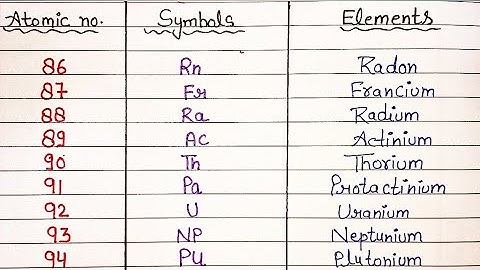 Atomic no. Symbols Elements
86 Rn Radon
87 Fr Francium
88 Ra Radium
89 AC Actinium
90 Th Thorium
91 Pa Protactinium
92 U Uranium
93 NP Neptunium
94 PU Plutonium